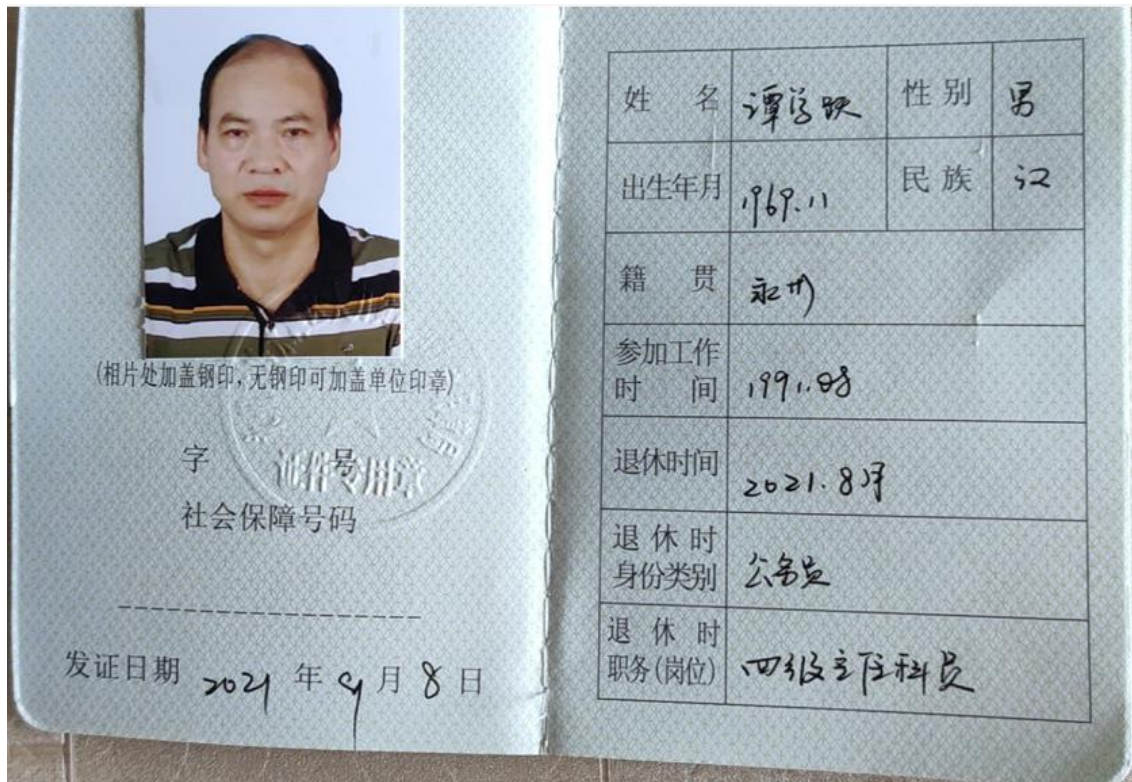 (相片处加盖钢印,无钢印可加盖单位印章)
字 号
证件专用章
社会保障号码
发证日期 2021 年 9 月 8 日
姓 名 谭学跃 性别 男
出生年月 1969.11 民族 汉
籍 贯 永州
参加工作时 间 1991.08
退休时间 2021.8月
退休时
身份类别 公务员
退休时
职务(岗位) 四级主任科员